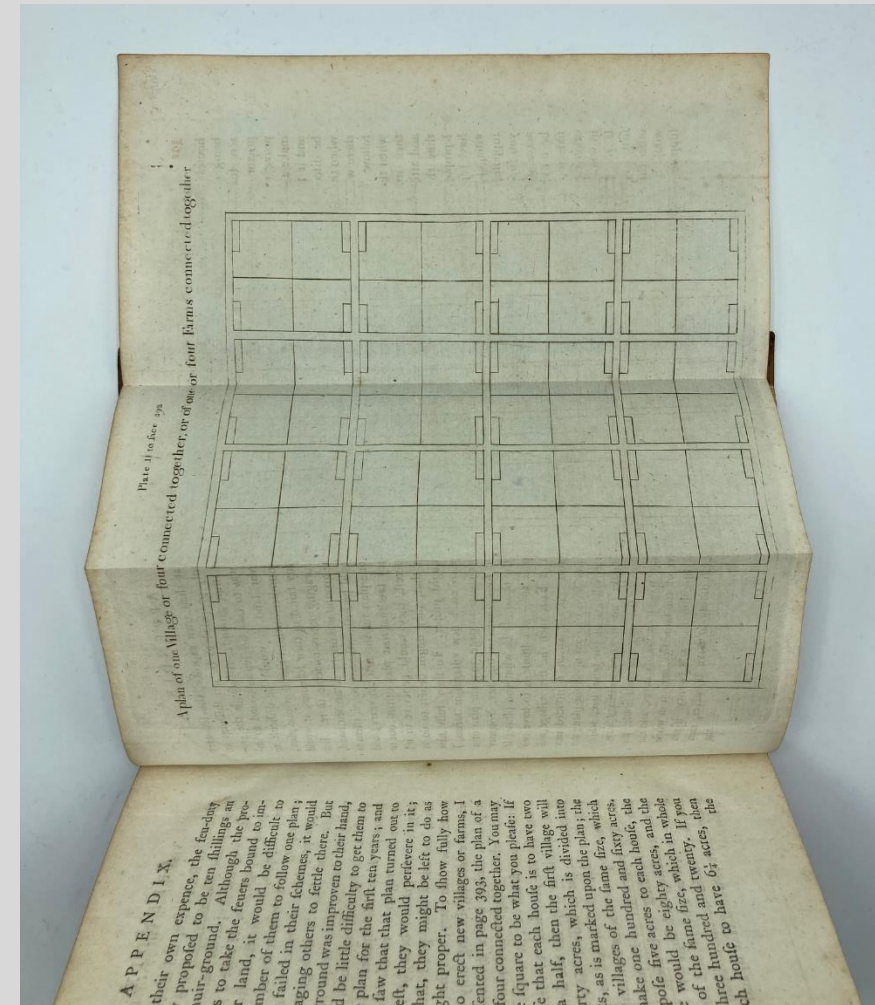 Plate II to face 392
A plan of one Village or four connected together, or of one or four Farms connected together
APPENDIX.
their own expence, the feu-duty
propoſed to be ten ſhillings an
muir-ground. Although the pro-
to take the feuers bound to im-
land, it would be difficult to
mber of them to follow one plan;
failed in their ſchemes, it would
aging others to ſettle there. But
round was improven to their hand,
be little difficulty to get them to
plan for the firſt ten years; and
ſaw that that plan turned out to
eſt, they would perſevere in it;
hat, they might be left to do as
ght proper. To ſhow fully how
o erect new villages or farms, I
ented in page 393, the plan of a
four connected together. You may
ſquare to be what you pleaſe: If
e that each houſe is to have two
a half, then the firſt village will
rty acres, which is divided into
s, as is marked upon the plan; the
villages of the ſame ſize, which
ake one hundred and ſixty acres.
poſe five acres to each houſe, the
would be eighty acres, and the
of the ſame ſize, which in whole
hree hundred and twenty. If you
ch houſe to have 6¼ acres, then
the